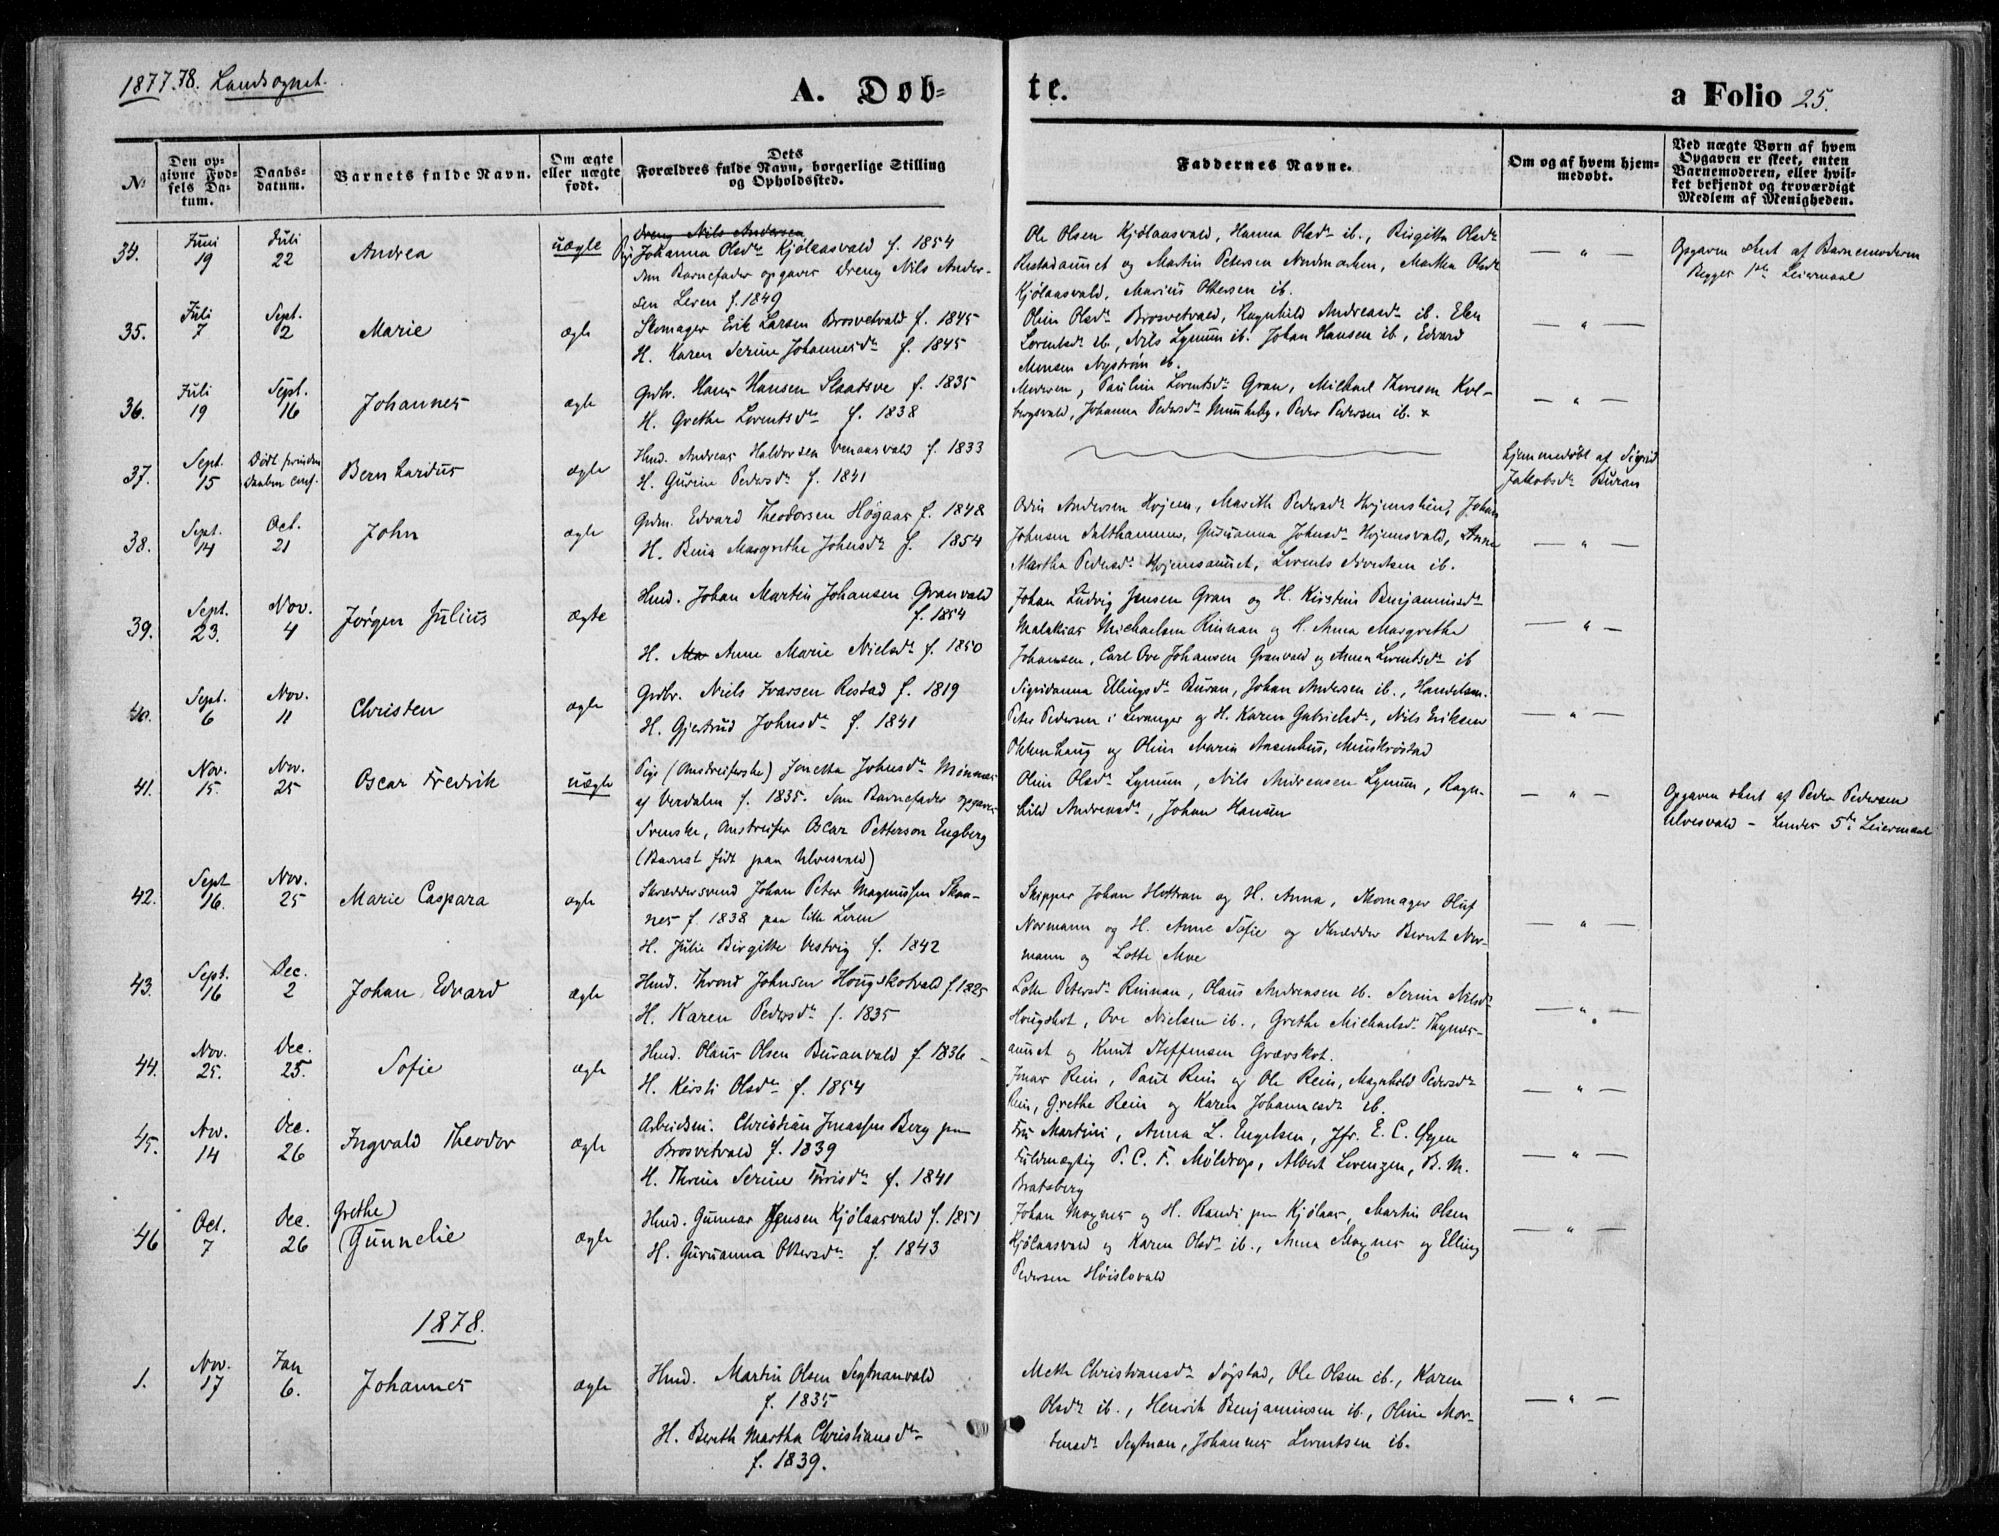 1877.78. Landsognet.
A. Døb-
te.
a Folio 25.
No
Den opgivne Fødsels Datum.
Daabsdatum.
Barnets fulde Navn.
Om ægte eller uægte født.
Dets Forældres fulde Navn, borgerlige Stilling og Opholdssted.
Faddernes Navne.
Om og af hvem hjemmedøbt.
Ved uægte Børn af hvem Opgaven er skeet, enten Barnemoderen, eller hvilket bekjendt og troværdigt Medlem af Menigheden.
34. Juni 19 Juli 22 Andrea uægte
Dreng Nils Andersen
Pig Johanna Olsdr Kjølaasvald f. 1854
som Barnefader opgives Dreng Nils Ander-
sen Leren f. 1849
Ole Olsen Kjølaasvald, Hanna Olsdr ib., Birgitta Olsdr
Restadaunet og Martin Petersen Nordmarken, Martha Olsdr
Kjølaasvald, Marius Ottersen ib.
— " —
Opgaven skeet af Barnemoderen
Begges 1ste Leiermaal
35. Juli 7 Sept. 2 Marie ægte
Skomager Erik Larsen Brosvetvald f. 1845
H. Karen Serine Johannesdr f. 1845
Oline Olsdr Brosvetvald, Ragnhild Andreasdr ib. Elen
Lorentsdr ib., Nils Lynum ib. Johan Hansen ib., Edvard
Monsen Nystrøm ib.
— " —
36. Juli 19 Sept. 16 Johannes ægte
Grdbr. Hans Hansen Slaatsve f. 1835
H. Grethe Lorentsdr f. 1838.
Moderen, Pauline Lorentsdr Gran, Michael Thoresen Kol-
bergsvald, Johanna Pedersdr Munkeby, Peder Pedersen ib. +
— " —
37. Sept. 15 Død forinden Daaben conf. Bernhardus ægte
Hmd. Andreas Haldorsen Venaasvald f. 1833
H. Gurine Pedersdr f. 1841
hjemmedøbt af Sigrid
Jakobsdr Buran
38. Sept. 14 Oct. 21 John ægte
Grdm. Edvard Theodorsen Høgaas f. 1848
H. Beria Margrethe Johnsdr f. 1854
Odin Andersen Hojem, Mareth Pedersdr Hojemslien, Johan
Johnsen Salthammer, Guruanna Johnsdr Hojemsvald, Anne
Martha Pedersdr Hojemsaunet, Lorents Sivertsen ib.
— " —
39. Sept. 23. Nov. 4 Jørgen Julius ægte
Hmd. Johan Martin Johansen Granvald
f. 1854
H. Ma Anne Marie Nielsdr f. 1850
Johan Ludvig Jensen Gran og H. Kirstine Benjaminsdr
Malakias Michaelsen Rinnan og H. Anna Margrethe
Johansen, Carl Ove Johansen Granvald og Anna Lorentsdr ib
— " —
40. Sept. 6 Nov. 11 Christen ægte
Grdbr. Niels Ivarsen Restad f. 1819
H. Gjertrud Johnsdr f. 1841
Sigridanna Ellingsdr Buran, Johan Andersen ib., Handelsm.
Peter Pedersen i Levanger og H. Karen Gabrielsdr, Nils Eriksen
Okkenhaug og Oline Maria Aasenhus, Munkrøstad
— " —
41. Nov. 15. Nov. 25 Oscar Fredrik uægte
Pige (Omstreiferske) Jonetta Johnsdr Mønnes
af Verdalen f. 1835. Som Barnefader opgives
Svenske, Omstreifer Oscar Petterson Engberg
(Barnet født paa Ulvesvald)
Oline Olsdr Lynum, Nils Andreasen Lynum, Ragn-
hild Andreasdr, Johan Hansen
— " —
Opgaven skeet af Peder Pedersen
Ulvesvald - hendes 5te Leiermaal
42. Sept 16. Nov. 25 Marie Caspara ægte
Skræddersvend Johan Peter Magnussen Skaa-
nes f. 1838 paa lille Leren
H. Julie Birgitte Vestvig f. 1842
Skipper Johan Hottran og H. Anna, Skomager Oluf
Normann og H. Anne Sofie og Skrædder Bernt Nor-
mann og Lotte Moe
— " —
43. Sept. 16 Dec. 2 Johan Edvard ægte
Hmd. Thrond Johnsen Hougskotvald f. 1825
H. Karen Pedersdr f. 1835
Lotte Petersdr Rinnan, Olaus Andreasen ib. Serine Nilsdr
Hougskot, Ove Nielsen ib., Grethe Michaelsdr Thynes-
aunet og Knut Steffensen Grævskot.
— " —
44. Nov. 25. Dec. 25. Sofie ægte
Hmd. Olaus Olsen Buranvald f. 1836 -
H. Kersti Olsdr f. 1854
Ivar Rein, Paul Rein og Ole Rein, Magnhild Pedersdr
Rein, Grethe Rein og Karen Johannesdr ib.
— " —
45. Nov. 14 Dec. 26 Ingvald Theodor ægte
Arbeidsm. Christian Jonassen Berg paa
Brosvetvald f. 1839
H. Thrine Serine Torrisdr f. 1841
Fru Martini, Anna L. Engelsen, Jfr. E. C. Øyen
Fuldmægtig P. C. F. Møldrop, Albert Lorenzen, B. M.
Bratsberg
— " —
46 Oct. 7 Dec. 26 Grethe
Gunnelie ægte
Hmd. Gunnar Jensen Kjølaasvald f. 1851
H. Guruanna Ottersdr f. 1843
Johan Moxnes og H. Randi paa Kjølaas, Martin Olsen
Kjølaasvald og Karen Olsdr ib., Anna Moxnes og Elling
Pedersen Høislovald
— " —
1878.
1. Nov. 17 Jan 6. Johannes ægte
Hmd. Martin Olsen Segtnanvald
f. 1835
H. Bereth Martha Christiansdr
f. 1839.
Mette Christiansdr Togstad, Ole Olsen ib., Karen
Olsdr ib., Henrik Benjaminsen ib., Oline Mor-
tensdr Segtnan, Johannes Lorentsen ib.
— " —